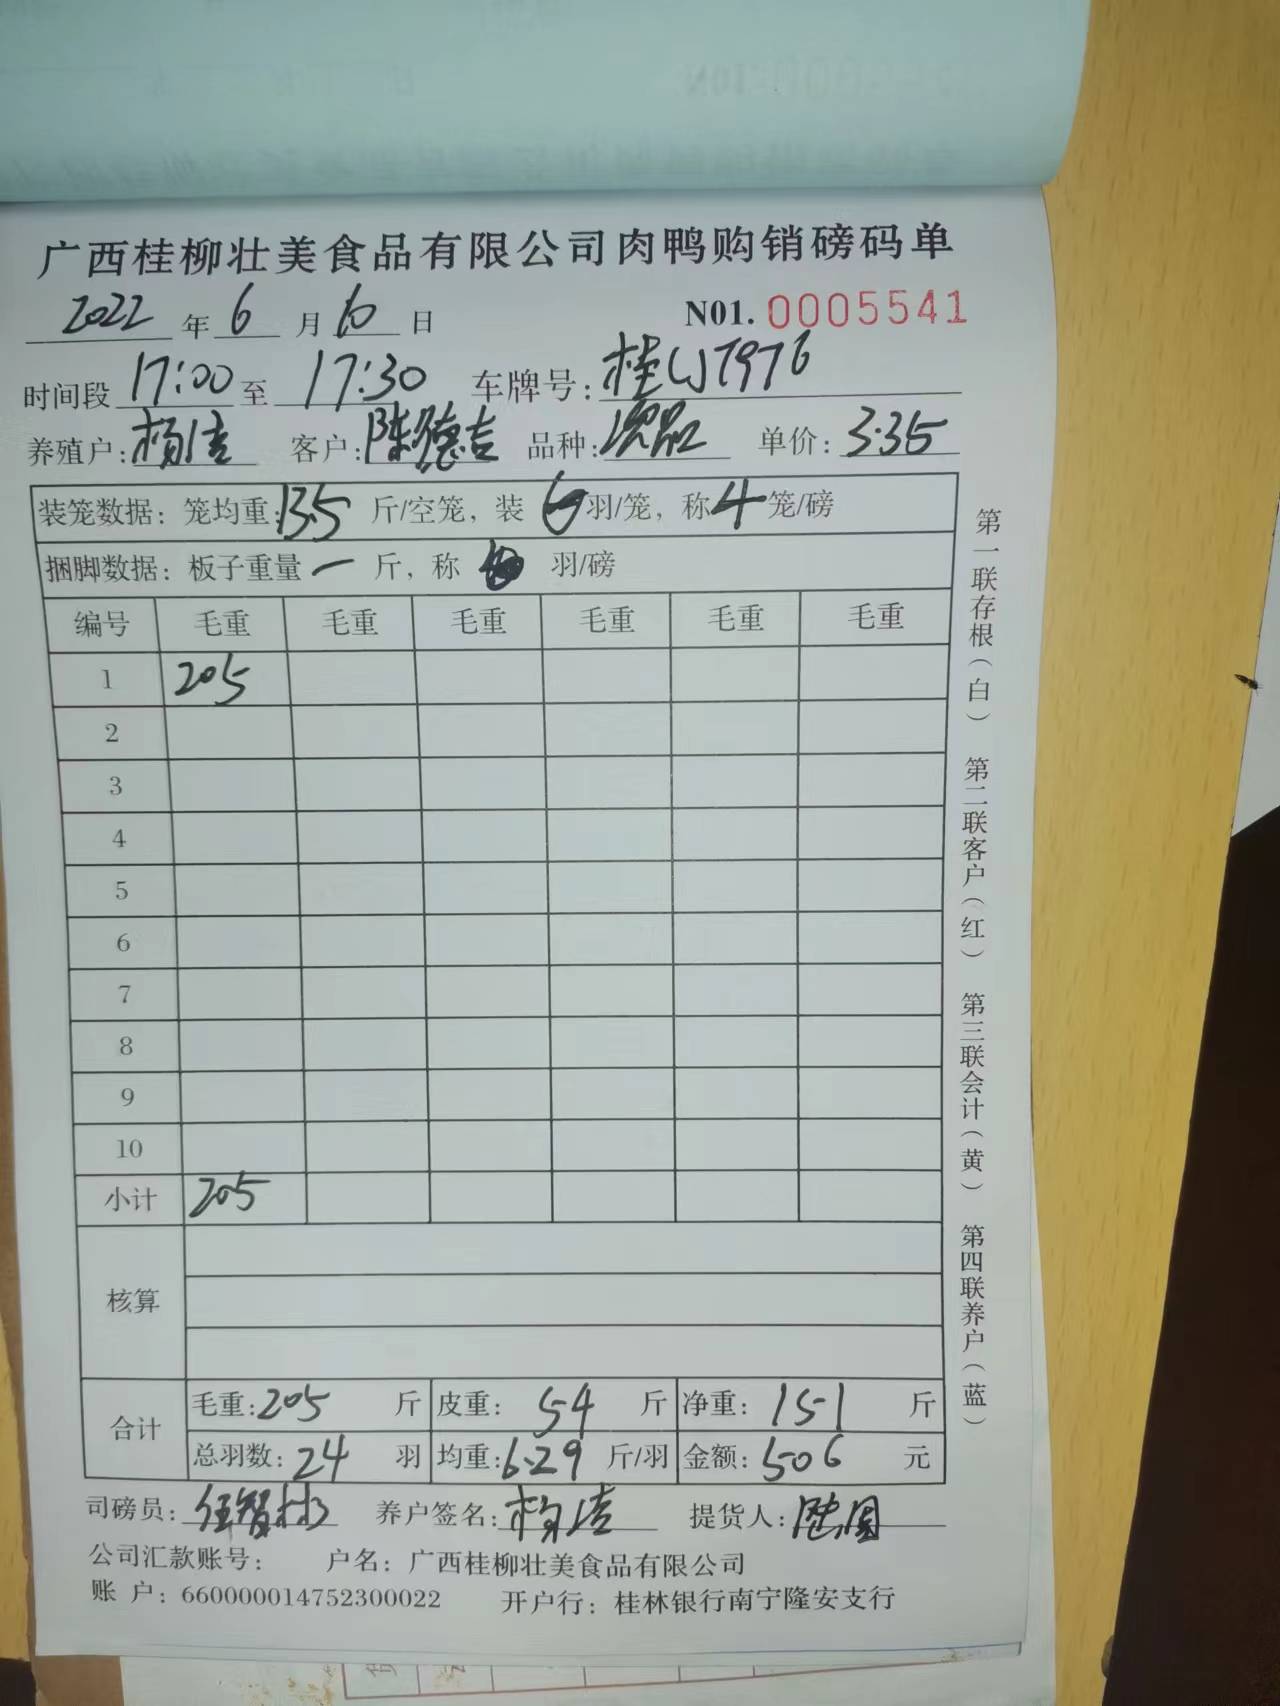 广西桂柳壮美食品有限公司肉鸭购销磅码单
2022年6月10日 N01. 0005541
时间段 17:00 至 17:30 车牌号: 桂 T976
养殖户: 杨 客户: 陈德吉 品种: 次品 单价: 3.35
装笼数据: 笼均重: 13.5 斤/空笼, 装 6 羽/笼, 称 4 笼/磅
捆脚数据: 板子重量 一 斤, 称 羽/磅
编号 毛重 毛重 毛重 毛重 毛重 毛重
1 205
2
3
4
5
6
7
8
9
10
小计 205
核算
合计
毛重: 205 斤 皮重: 54 斤 净重: 151 斤
总羽数: 24 羽 均重: 6.29 斤/羽 金额: 506 元
司磅员: 任智彬 养户签名: 杨 提货人:
公司汇款账号: 户名: 广西桂柳壮美食品有限公司
账 户: 660000014752300022 开户行: 桂林银行南宁隆安支行
第一联存根(白) 第二联客户(红) 第三联会计(黄) 第四联养户(蓝)